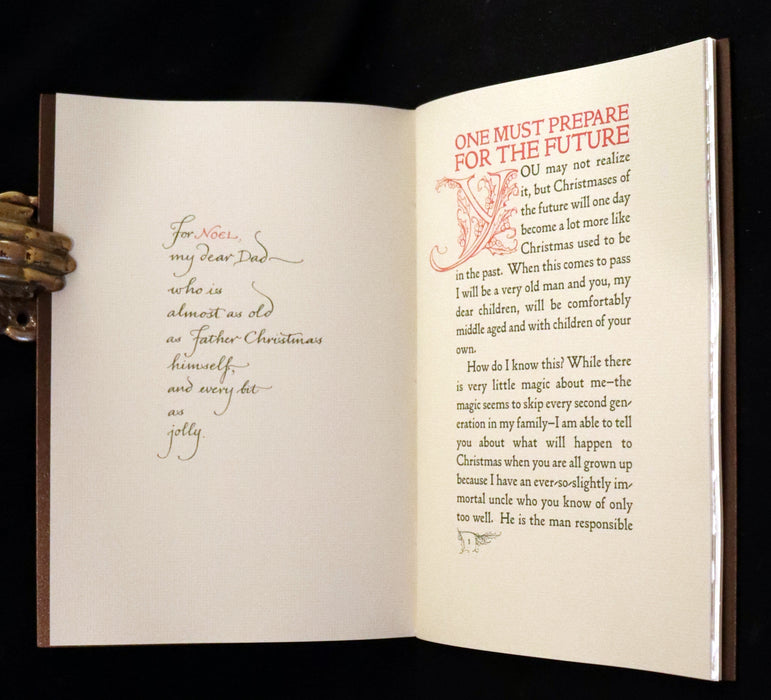 for NOEL,
my dear Dad
who is
almost as old
as Father Christmas
himself,
and every bit
as
jolly.
ONE MUST PREPARE
FOR THE FUTURE
YOU may not realize
it, but Christmases of
the future will one day
become a lot more like
Christmas used to be
in the past. When this comes to pass
I will be a very old man and you, my
dear children, will be comfortably
middle aged and with children of your
own.
How do I know this? While there
is very little magic about me—the
magic seems to skip every second gen-
eration in my family—I am able to tell
you about what will happen to
Christmas when you are all grown up
because I have an ever-so-slightly im-
mortal uncle who you know of only
too well. He is the man responsible
1